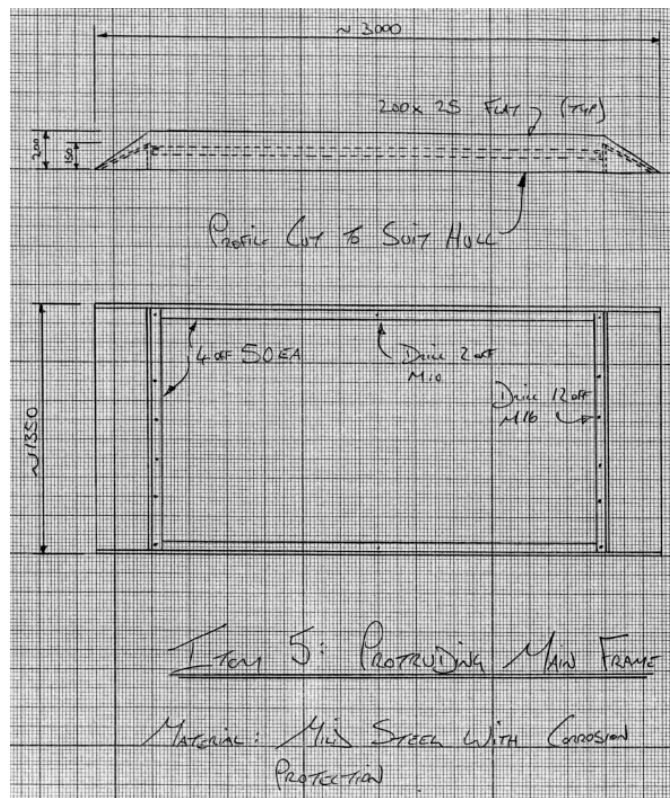 ~ 3000
200 x 25 FLAT (TYP)
200
PROFILE CUT TO SUIT HULL
4 OFF 50 EA
DRILL 2 OFF
M10
DRILL 12 OFF
M16
~1350
ITEM 5: PROTRUDING MAIN FRAME
MATERIAL: MILD STEEL WITH CORROSION
PROTECTION